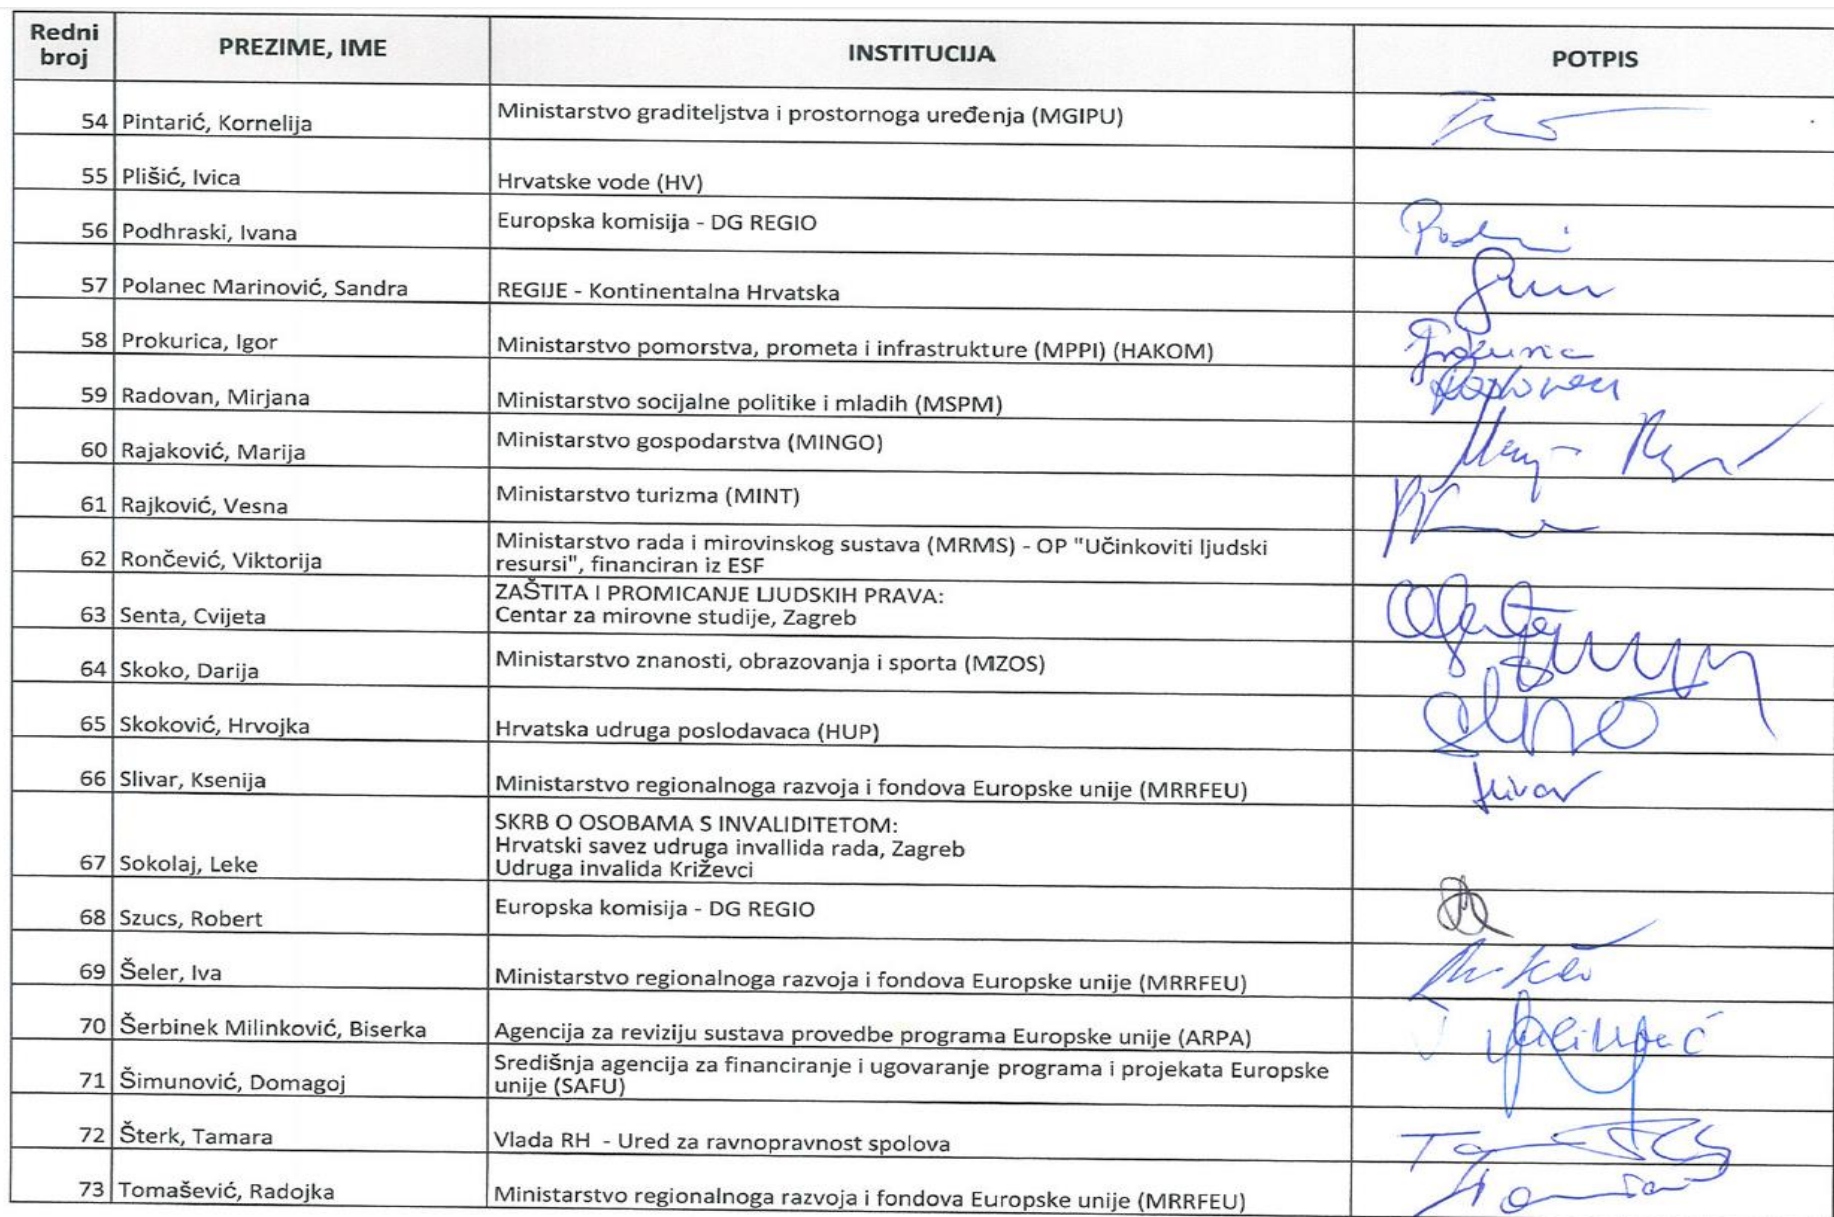 Redni broj PREZIME, IME INSTITUCIJA POTPIS
54 Pintarić, Kornelija Ministarstvo graditeljstva i prostornoga uređenja (MGIPU)
55 Plišić, Ivica Hrvatske vode (HV)
56 Podhraski, Ivana Europska komisija - DG REGIO
57 Polanec Marinović, Sandra REGIJE - Kontinentalna Hrvatska
58 Prokurica, Igor Ministarstvo pomorstva, prometa i infrastrukture (MPPI) (HAKOM)
59 Radovan, Mirjana Ministarstvo socijalne politike i mladih (MSPM)
60 Rajaković, Marija Ministarstvo gospodarstva (MINGO)
61 Rajković, Vesna Ministarstvo turizma (MINT)
62 Rončević, Viktorija Ministarstvo rada i mirovinskog sustava (MRMS) - OP "Učinkoviti ljudski
resursi", financiran iz ESF
63 Senta, Cvijeta ZAŠTITA I PROMICANJE LJUDSKIH PRAVA:
Centar za mirovne studije, Zagreb
64 Skoko, Darija Ministarstvo znanosti, obrazovanja i sporta (MZOS)
65 Skoković, Hrvojka Hrvatska udruga poslodavaca (HUP)
66 Slivar, Ksenija Ministarstvo regionalnoga razvoja i fondova Europske unije (MRRFEU)
67 Sokolaj, Leke SKRB O OSOBAMA S INVALIDITETOM:
Hrvatski savez udruga invallida rada, Zagreb
Udruga invalida Križevci
68 Szucs, Robert Europska komisija - DG REGIO
69 Šeler, Iva Ministarstvo regionalnoga razvoja i fondova Europske unije (MRRFEU)
70 Šerbinek Milinković, Biserka Agencija za reviziju sustava provedbe programa Europske unije (ARPA)
71 Šimunović, Domagoj Središnja agencija za financiranje i ugovaranje programa i projekata Europske
unije (SAFU)
72 Šterk, Tamara Vlada RH - Ured za ravnopravnost spolova
73 Tomašević, Radojka Ministarstvo regionalnoga razvoja i fondova Europske unije (MRRFEU)